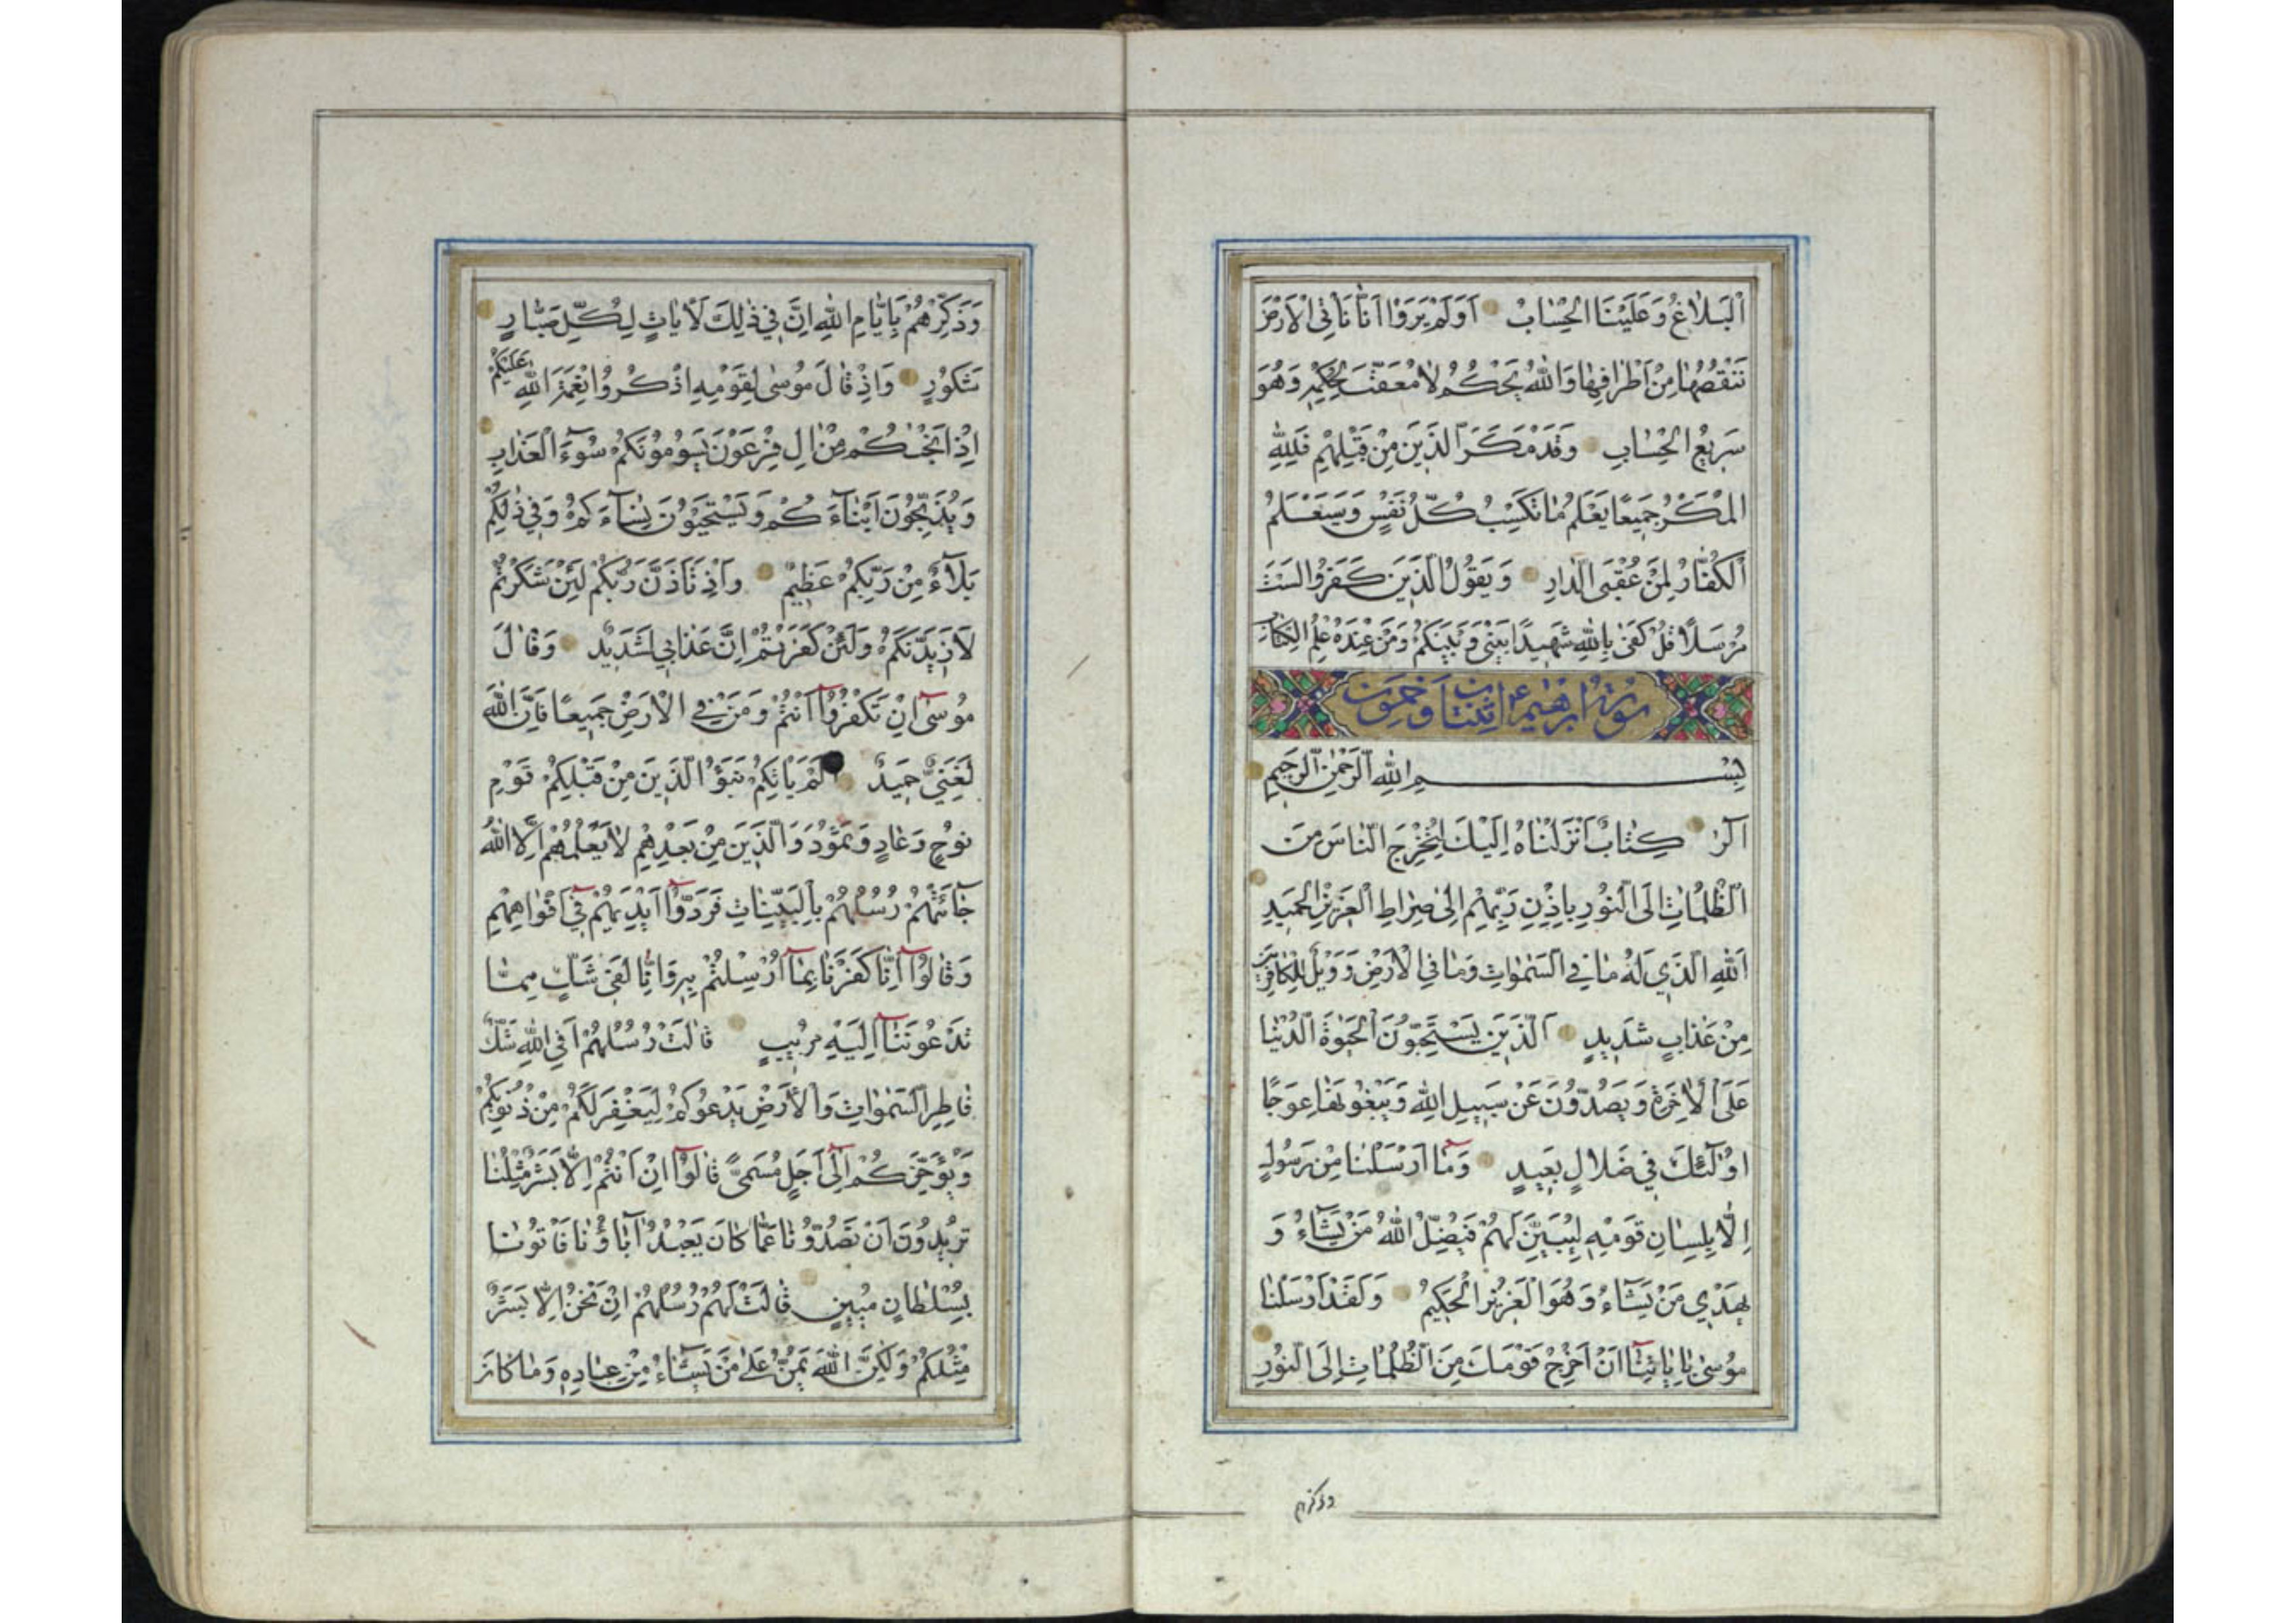 اَلْبَلاٰغُ وَعَلَيْنَا الْحِسٰابُ اَوَلَمْ يَرَوْا اَنّٰا نَاْتِى الْاَرْضَ
نَنْقُصُهٰا مِنْ اَطْرٰافِهٰا وَاللّٰهُ يَحْكُمُ لاٰ مُعَقِّبَ لِحُكْمِهِ وَهُوَ
سَرِيعُ الْحِسٰابِ وَقَدْ مَكَرَ الَّذِينَ مِنْ قَبْلِهِمْ فَلِلّٰهِ
الْمَكْرُ جَمِيعًا يَعْلَمُ مٰا تَكْسِبُ كُلُّ نَفْسٍ وَسَيَعْلَمُ
اَلْكُفّٰارُ لِمَنْ عُقْبَى الدّٰارِ وَيَقُولُ الَّذِينَ كَفَرُوا لَسْتَ
مُرْسَلًا قُلْ كَفىٰ بِاللّٰهِ شَهِيدًا بَيْنِي وَبَيْنَكُمْ وَمَنْ عِنْدَهُ عِلْمُ الْكِتٰابِ
سورة ابرهيم اثنتان وخمسون
بِسْمِ اللّٰهِ الرَّحْمٰنِ الرَّحِيمِ
آلرٰ كِتٰابٌ اَنْزَلْنٰاهُ اِلَيْكَ لِتُخْرِجَ النّٰاسَ مِنَ
الظُّلُمٰاتِ اِلَى النُّورِ بِاِذْنِ رَبِّهِمْ اِلىٰ صِرٰاطِ الْعَزِيزِ الْحَمِيدِ
اَللّٰهِ الَّذِي لَهُ مٰا فِي السَّمٰوٰاتِ وَمٰا فِي الْاَرْضِ وَوَيْلٌ لِلْكٰافِرِينَ
مِنْ عَذٰابٍ شَدِيدٍ اَلَّذِينَ يَسْتَحِبُّونَ الْحَيٰوةَ الدُّنْيٰا
عَلَى الْاٰخِرَةِ وَيَصُدُّونَ عَنْ سَبِيلِ اللّٰهِ وَيَبْغُونَهٰا عِوَجًا
اُولٰٓئِكَ فِي ضَلاٰلٍ بَعِيدٍ وَمٰٓا اَرْسَلْنٰا مِنْ رَسُولٍ
اِلّٰا بِلِسٰانِ قَوْمِهِ لِيُبَيِّنَ لَهُمْ فَيُضِلُّ اللّٰهُ مَنْ يَشٰٓاءُ وَ
يَهْدِي مَنْ يَشٰٓاءُ وَهُوَ الْعَزِيزُ الْحَكِيمُ وَلَقَدْ اَرْسَلْنٰا
مُوسىٰ بِاٰيٰاتِنٰٓا اَنْ اَخْرِجْ قَوْمَكَ مِنَ الظُّلُمٰاتِ اِلَى النُّورِ
وذكرهم
وَذَكِّرْهُمْ بِاَيّٰامِ اللّٰهِ اِنَّ فِي ذٰلِكَ لَاٰيٰاتٍ لِكُلِّ صَبّٰارٍ
شَكُورٍ وَاِذْ قٰالَ مُوسىٰ لِقَوْمِهِ اذْكُرُوا نِعْمَةَ اللّٰهِ عَلَيْكُمْ
اِذْ اَنْجٰيكُمْ مِنْ اٰلِ فِرْعَوْنَ يَسُومُونَكُمْ سُوٓءَ الْعَذٰابِ
وَيُذَبِّحُونَ اَبْنٰٓاءَكُمْ وَيَسْتَحْيُونَ نِسٰٓاءَكُمْ وَفِي ذٰلِكُمْ
بَلٰٓاءٌ مِنْ رَبِّكُمْ عَظِيمٌ وَاِذْ تَاَذَّنَ رَبُّكُمْ لَئِنْ شَكَرْتُمْ
لَاَزِيدَنَّكُمْ وَلَئِنْ كَفَرْتُمْ اِنَّ عَذٰابِي لَشَدِيدٌ وَقٰالَ
مُوسىٰٓ اِنْ تَكْفُرُوٓا اَنْتُمْ وَمَنْ فِي الْاَرْضِ جَمِيعًا فَاِنَّ اللّٰهَ
لَغَنِيٌّ حَمِيدٌ اَلَمْ يَاْتِكُمْ نَبَؤُا الَّذِينَ مِنْ قَبْلِكُمْ قَوْمِ
نُوحٍ وَعٰادٍ وَثَمُودَ وَالَّذِينَ مِنْ بَعْدِهِمْ لاٰ يَعْلَمُهُمْ اِلَّا اللّٰهُ
جٰٓائَتْهُمْ رُسُلُهُمْ بِالْبَيِّنٰاتِ فَرَدُّوٓا اَيْدِيَهُمْ فِيٓ اَفْوٰاهِهِمْ
وَقٰالُوٓا اِنّٰا كَفَرْنٰا بِمٰٓا اُرْسِلْتُمْ بِهِ وَاِنّٰا لَفِي شَكٍّ مِمّٰا
تَدْعُونَنٰٓا اِلَيْهِ مُرِيبٍ قٰالَتْ رُسُلُهُمْ اَفِي اللّٰهِ شَكٌّ
فٰاطِرِ السَّمٰوٰاتِ وَالْاَرْضِ يَدْعُوكُمْ لِيَغْفِرَ لَكُمْ مِنْ ذُنُوبِكُمْ
وَيُؤَخِّرَكُمْ اِلىٰٓ اَجَلٍ مُسَمًّى قٰالُوٓا اِنْ اَنْتُمْ اِلّٰا بَشَرٌ مِثْلُنٰا
تُرِيدُونَ اَنْ تَصُدُّونٰا عَمّٰا كٰانَ يَعْبُدُ آبٰاؤُنٰا فَاْتُونٰا
بِسُلْطٰانٍ مُبِينٍ قٰالَتْ لَهُمْ رُسُلُهُمْ اِنْ نَحْنُ اِلّٰا بَشَرٌ
مِثْلُكُمْ وَلٰكِنَّ اللّٰهَ يَمُنُّ عَلىٰ مَنْ يَشٰٓاءُ مِنْ عِبٰادِهِ وَمٰا كٰانَ